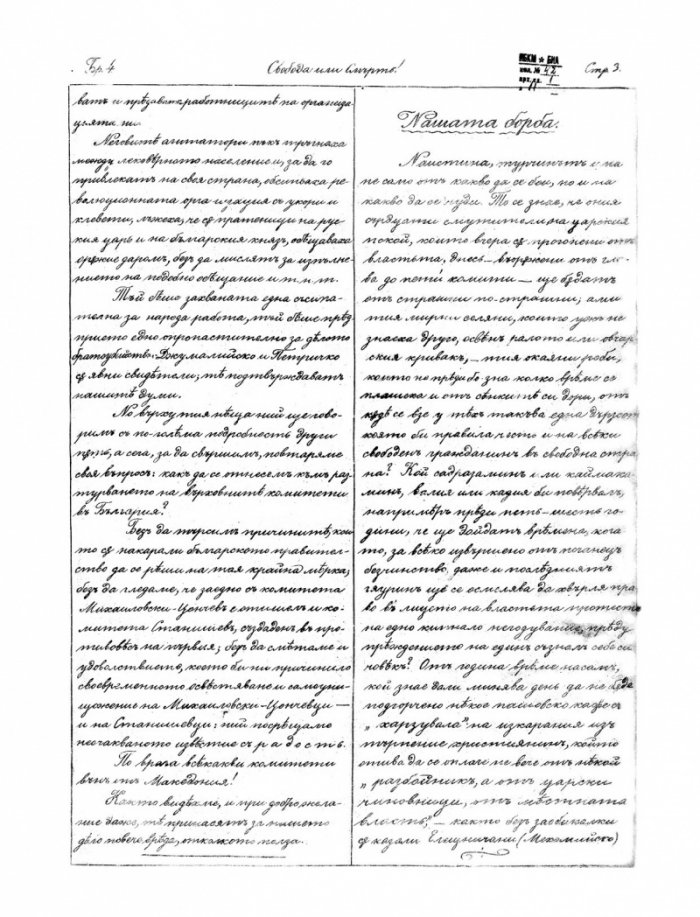 Бр. 4
Свобода или смърть!
НБКМ ★ БИА
кол. № 42
арх. ед. 1
Стр. 3.
ватъ и прѣзаватъ работницитѣ на организа-
цията ни.
Неговитѣ агитатори пъкъ тръгнаха
между лековѣрното население и, за да го
привлекатъ на своя страна, обсипаха ре-
волюционната организация съ укори и
клевети, лъжеха, че сѫ пратеници на рус-
кия царь и на българския князъ, обѣщаваха
орѫжие даромъ, безъ да мислятъ за изпълне-
нието на подобно обѣщание и т. н. т.
Тъй бѣше захваната една съсипа-
телна за народа работа, тъй бѣше прѣд-
прието едно опропастително за дѣлото
братоубийство. Джумалийско и Петричко
сѫ явни свидѣтели; тѣ подтвърждаватъ
нашитѣ думи.
Но върху тия нѣща ний ще гово-
римъ съ по-голѣма подробность други
пѫть, а сега, за да свършимъ, повтаряме
своя въпросъ: какъ да се отнесемъ къмъ раз-
турването на върховнитѣ комитети
въ България?
Безъ да търсимъ причинитѣ, кои-
то сѫ накарали българското правител-
ство да се рѣши на тая крайна мѣрка;
безъ да гледаме, че заедно съ комитета
Михаиловски-Цончевъ е отишелъ и ко-
митета Станишевъ, създаденъ въ про-
тивовѣсъ на първия; безъ да смѣтаме и
удоволствието, което би ни причинило
своеврѣменното освѣстяване и самоуни-
щожение на Михаиловски-Цончевци —
и на Станишевци: ний посрѣщаме
неочакваното известие съ радость.
По врага всѣкакви комитети
вънъ отъ Македония!
Както видѣхме, и при добро жела-
ние даже, тѣ принасятъ за нашето
дѣло повече врѣда, отколкото полза.
Нашата борба.
Наистина, турчинътъ има
не само отъ какво да се бои, но и на
какво да се чуди. То се знае, че ония
отчаяни смутители на царския
покой, които вчера сѫ прогонени отъ
властьта, днесъ — въорѫжени отъ гла-
ва до пети комити — ще бѫдатъ
отъ страшни по-страшни; ами
тия мирни селяни, които ужъ не
знаеха друго, освѣнъ ралото или овчар-
ския кривакъ, — тия окаяни роби,
които не прѣди бо зна колко врѣме се
плашеха и отъ сѣнкитѣ си дори, отъ
кѫдѣ се взе у тѣхъ такъва една дързость,
която би правила честь и на всѣки
свободенъ гражданинъ въ свободна стра-
на? Кой садразаминъ или каймака-
минъ, валия или кадия би повѣрвалъ,
напримѣръ прѣди петь-шесть го-
дини, че ще дойдатъ врѣмена, кога-
то, за всѣко извършено отъ поганецъ
безчинство, даже и послѣдниятъ
гяуринъ ще се осмелява да хвърля пра-
во въ лицето на властьта протеста
на едно кипнало негодувание, прѣду-
прѣждението на единъ съзналъ себе си
човѣкъ? Отъ година врѣме насамъ,
кой знае дали минава день да не бѫде
подгорчено нѣкое пашовско кафе съ
„харзувала“ на изкарания изъ
търпение християнинъ, който
отива да се оплаче не вече отъ нѣкой
„разбойникъ, а отъ царски
чиновници, отъ мѣстната
власть,“ — както безъ заобикалки
сѫ казали Елешничани (Мехомийско)